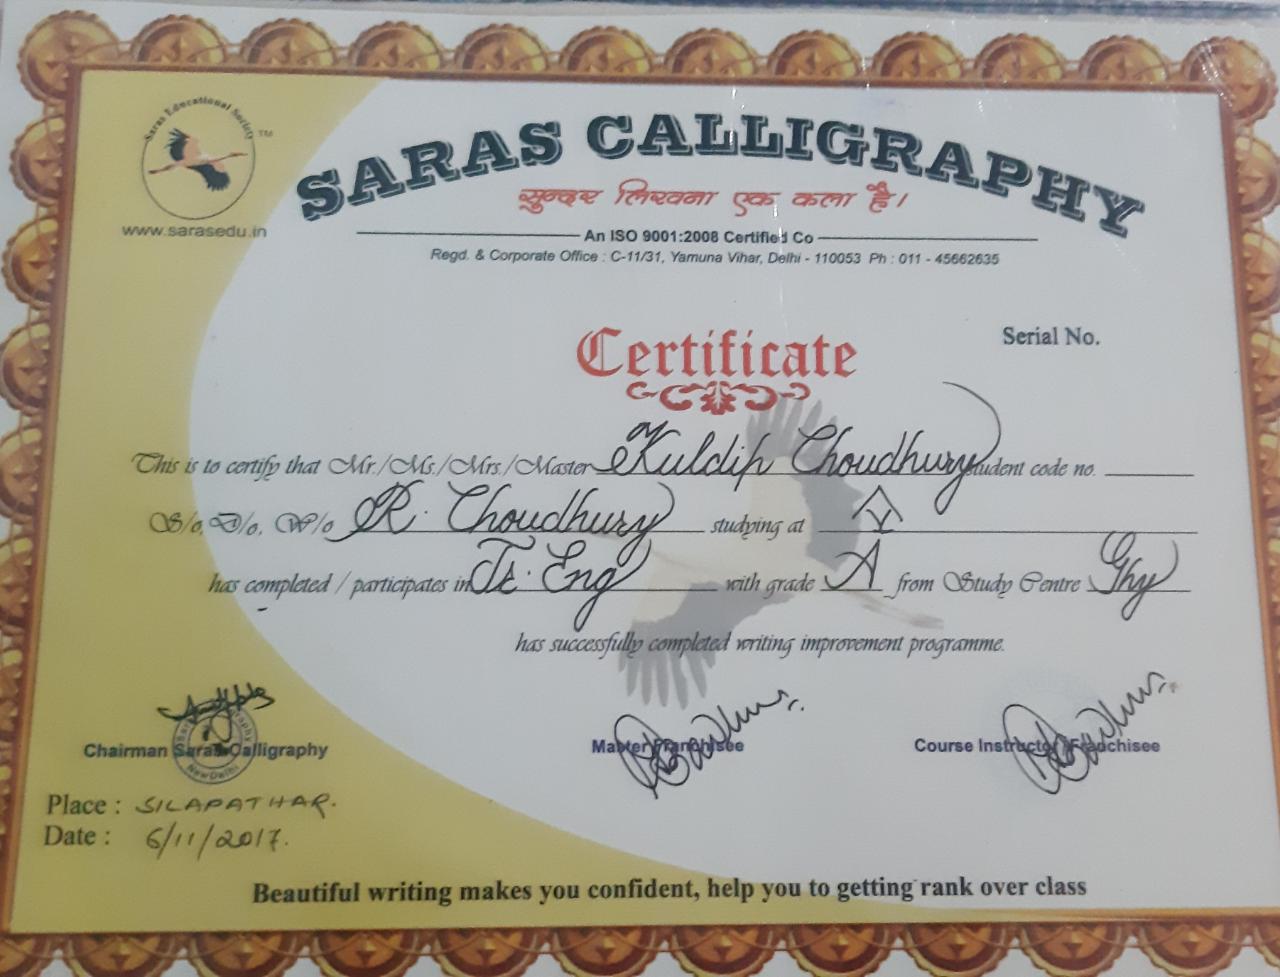 Saras Educational Society
TM
www.sarasedu.in
SARAS CALLIGRAPHY
सुन्दर लिखना एक कला है।
An ISO 9001:2008 Certified Co
Regd. & Corporate Office : C-11/31, Yamuna Vihar, Delhi - 110053 Ph : 011 - 45662635
Serial No.
Certificate
This is to certify that Mr./Ms./Mrs./Master Kuldip Choudhury Student code no.
S/o, D/o, W/o R. Choudhury studying at V
has completed / participates in Tr. Eng with grade A from Study Centre Ghy
has successfully completed writing improvement programme.
Chairman Saras Calligraphy
Master Franchisee
Course Instructor / Franchisee
Place : SILAPATHAR.
Date : 6/11/2017.
Beautiful writing makes you confident, help you to getting rank over class